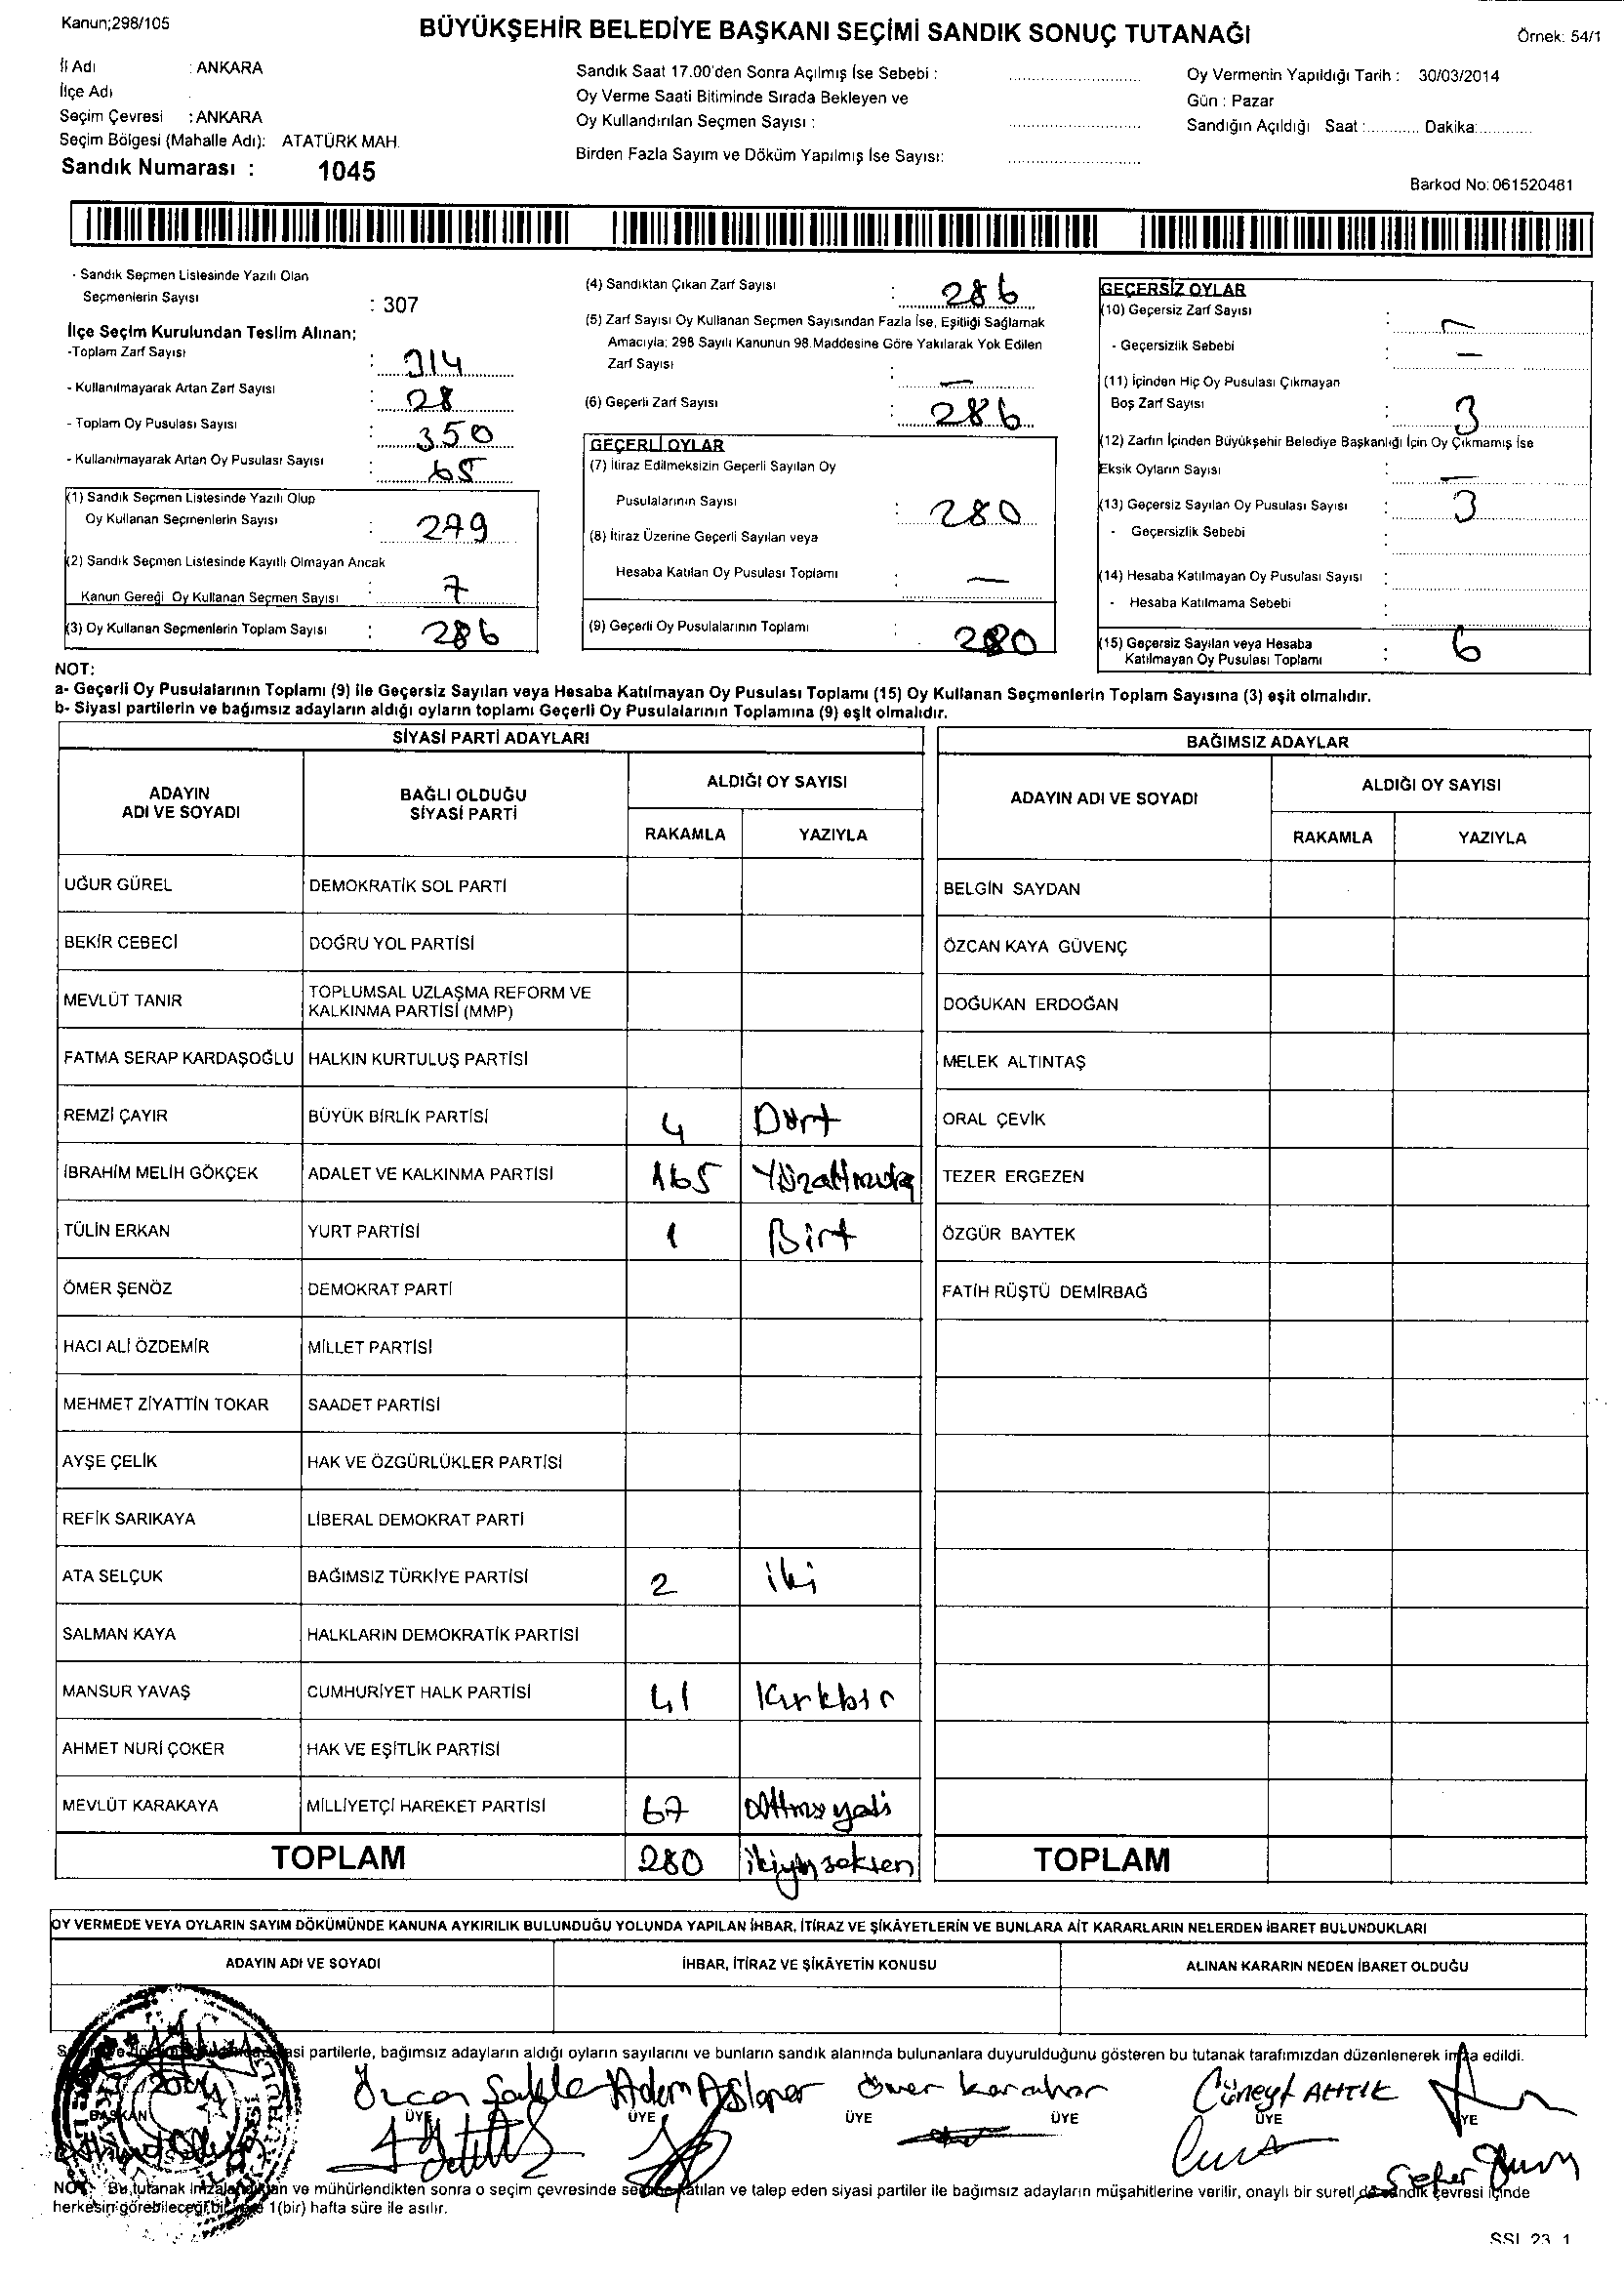 Kanun;298/105
BÜYÜKŞEHİR BELEDİYE BAŞKANI SEÇİMİ SANDIK SONUÇ TUTANAĞI
Örnek: 54/1
İl Adı : ANKARA
İlçe Adı
Seçim Çevresi : ANKARA
Seçim Bölgesi (Mahalle Adı): ATATÜRK MAH.
Sandık Numarası : 1045
Sandık Saat 17.00'den Sonra Açılmış İse Sebebi :
Oy Verme Saati Bitiminde Sırada Bekleyen ve
Oy Kullandırılan Seçmen Sayısı :
Birden Fazla Sayım ve Döküm Yapılmış İse Sayısı:
Oy Vermenin Yapıldığı Tarih : 30/03/2014
Gün : Pazar
Sandığın Açıldığı Saat :............ Dakika:............
Barkod No: 061520481
- Sandık Seçmen Listesinde Yazılı Olan
Seçmenlerin Sayısı : 307
İlçe Seçim Kurulundan Teslim Alınan;
-Toplam Zarf Sayısı : 314
- Kullanılmayarak Artan Zarf Sayısı : 28
- Toplam Oy Pusulası Sayısı : 350
- Kullanılmayarak Artan Oy Pusulası Sayısı : 65
(1) Sandık Seçmen Listesinde Yazılı Olup
Oy Kullanan Seçmenlerin Sayısı : 279
(2) Sandık Seçmen Listesinde Kayıtlı Olmayan Ancak
Kanun Gereği Oy Kullanan Seçmen Sayısı : 7
(3) Oy Kullanan Seçmenlerin Toplam Sayısı : 286
(4) Sandıktan Çıkan Zarf Sayısı : 286
(5) Zarf Sayısı Oy Kullanan Seçmen Sayısından Fazla İse, Eşitliği Sağlamak
Amacıyla; 298 Sayılı Kanunun 98.Maddesine Göre Yakılarak Yok Edilen
Zarf Sayısı : —
(6) Geçerli Zarf Sayısı : 286
GEÇERLİ OYLAR
(7) İtiraz Edilmeksizin Geçerli Sayılan Oy
Pusulalarının Sayısı : 280
(8) İtiraz Üzerine Geçerli Sayılan veya
Hesaba Katılan Oy Pusulası Toplamı : —
(9) Geçerli Oy Pusulalarının Toplamı : 280
GEÇERSİZ OYLAR
(10) Geçersiz Zarf Sayısı : —
- Geçersizlik Sebebi : —
(11) İçinden Hiç Oy Pusulası Çıkmayan
Boş Zarf Sayısı : 3
(12) Zarfın İçinden Büyükşehir Belediye Başkanlığı İçin Oy Çıkmamış İse
Eksik Oyların Sayısı : —
(13) Geçersiz Sayılan Oy Pusulası Sayısı : 3
- Geçersizlik Sebebi :
(14) Hesaba Katılmayan Oy Pusulası Sayısı :
- Hesaba Katılmama Sebebi :
(15) Geçersiz Sayılan veya Hesaba
Katılmayan Oy Pusulası Toplamı : 6
NOT:
a- Geçerli Oy Pusulalarının Toplamı (9) ile Geçersiz Sayılan veya Hesaba Katılmayan Oy Pusulası Toplamı (15) Oy Kullanan Seçmenlerin Toplam Sayısına (3) eşit olmalıdır.
b- Siyasi partilerin ve bağımsız adayların aldığı oyların toplamı Geçerli Oy Pusulalarının Toplamına (9) eşit olmalıdır.
SİYASİ PARTİ ADAYLARI
ADAYIN ADI VE SOYADI
BAĞLI OLDUĞU SİYASİ PARTİ
ALDIĞI OY SAYISI
RAKAMLA YAZIYLA
UĞUR GÜREL DEMOKRATİK SOL PARTİ
BEKİR CEBECİ DOĞRU YOL PARTİSİ
MEVLÜT TANIR TOPLUMSAL UZLAŞMA REFORM VE
KALKINMA PARTİSİ (MMP)
FATMA SERAP KARDAŞOĞLU HALKIN KURTULUŞ PARTİSİ
REMZİ ÇAYIR BÜYÜK BİRLİK PARTİSİ 4 Dört
İBRAHİM MELİH GÖKÇEK ADALET VE KALKINMA PARTİSİ 165
TÜLİN ERKAN YURT PARTİSİ 1 Birt
ÖMER ŞENÖZ DEMOKRAT PARTİ
HACI ALİ ÖZDEMİR MİLLET PARTİSİ
MEHMET ZİYATTİN TOKAR SAADET PARTİSİ
AYŞE ÇELİK HAK VE ÖZGÜRLÜKLER PARTİSİ
REFİK SARIKAYA LİBERAL DEMOKRAT PARTİ
ATA SELÇUK BAĞIMSIZ TÜRKİYE PARTİSİ 2 iki
SALMAN KAYA HALKLARIN DEMOKRATİK PARTİSİ
MANSUR YAVAŞ CUMHURİYET HALK PARTİSİ 41 Kırkbir
AHMET NURİ ÇOKER HAK VE EŞİTLİK PARTİSİ
MEVLÜT KARAKAYA MİLLİYETÇİ HAREKET PARTİSİ 67 Altmışyedi
TOPLAM 280 ikiyüzseksen
BAĞIMSIZ ADAYLAR
ADAYIN ADI VE SOYADI
ALDIĞI OY SAYISI
RAKAMLA YAZIYLA
BELGİN SAYDAN
ÖZCAN KAYA GÜVENÇ
DOĞUKAN ERDOĞAN
MELEK ALTINTAŞ
ORAL ÇEVİK
TEZER ERGEZEN
ÖZGÜR BAYTEK
FATİH RÜŞTÜ DEMİRBAĞ
TOPLAM
OY VERMEDE VEYA OYLARIN SAYIM DÖKÜMÜNDE KANUNA AYKIRILIK BULUNDUĞU YOLUNDA YAPILAN İHBAR, İTİRAZ VE ŞİKÂYETLERİN VE BUNLARA AİT KARARLARIN NELERDEN İBARET BULUNDUKLARI
ADAYIN ADI VE SOYADI İHBAR, İTİRAZ VE ŞİKÂYETİN KONUSU ALINAN KARARIN NEDEN İBARET OLDUĞU
partilerle, bağımsız adayların aldığı oyların sayılarını ve bunların sandık alanında bulunanlara duyurulduğunu gösteren bu tutanak tarafımızdan düzenlenerek imza edildi.
Özcan Adem Ömer Cüneyt
BAŞKAN ÜYE ÜYE ÜYE ÜYE ÜYE ÜYE
Sefer
NOT: Bu tutanak ve mühürlendikten sonra o seçim çevresinde seçime katılan ve talep eden siyasi partiler ile bağımsız adayların müşahitlerine verilir, onaylı bir sureti de sandık çevresi içinde
herkesin görebileceği bir yere 1(bir) hafta süre ile asılır.
SSL 23 1